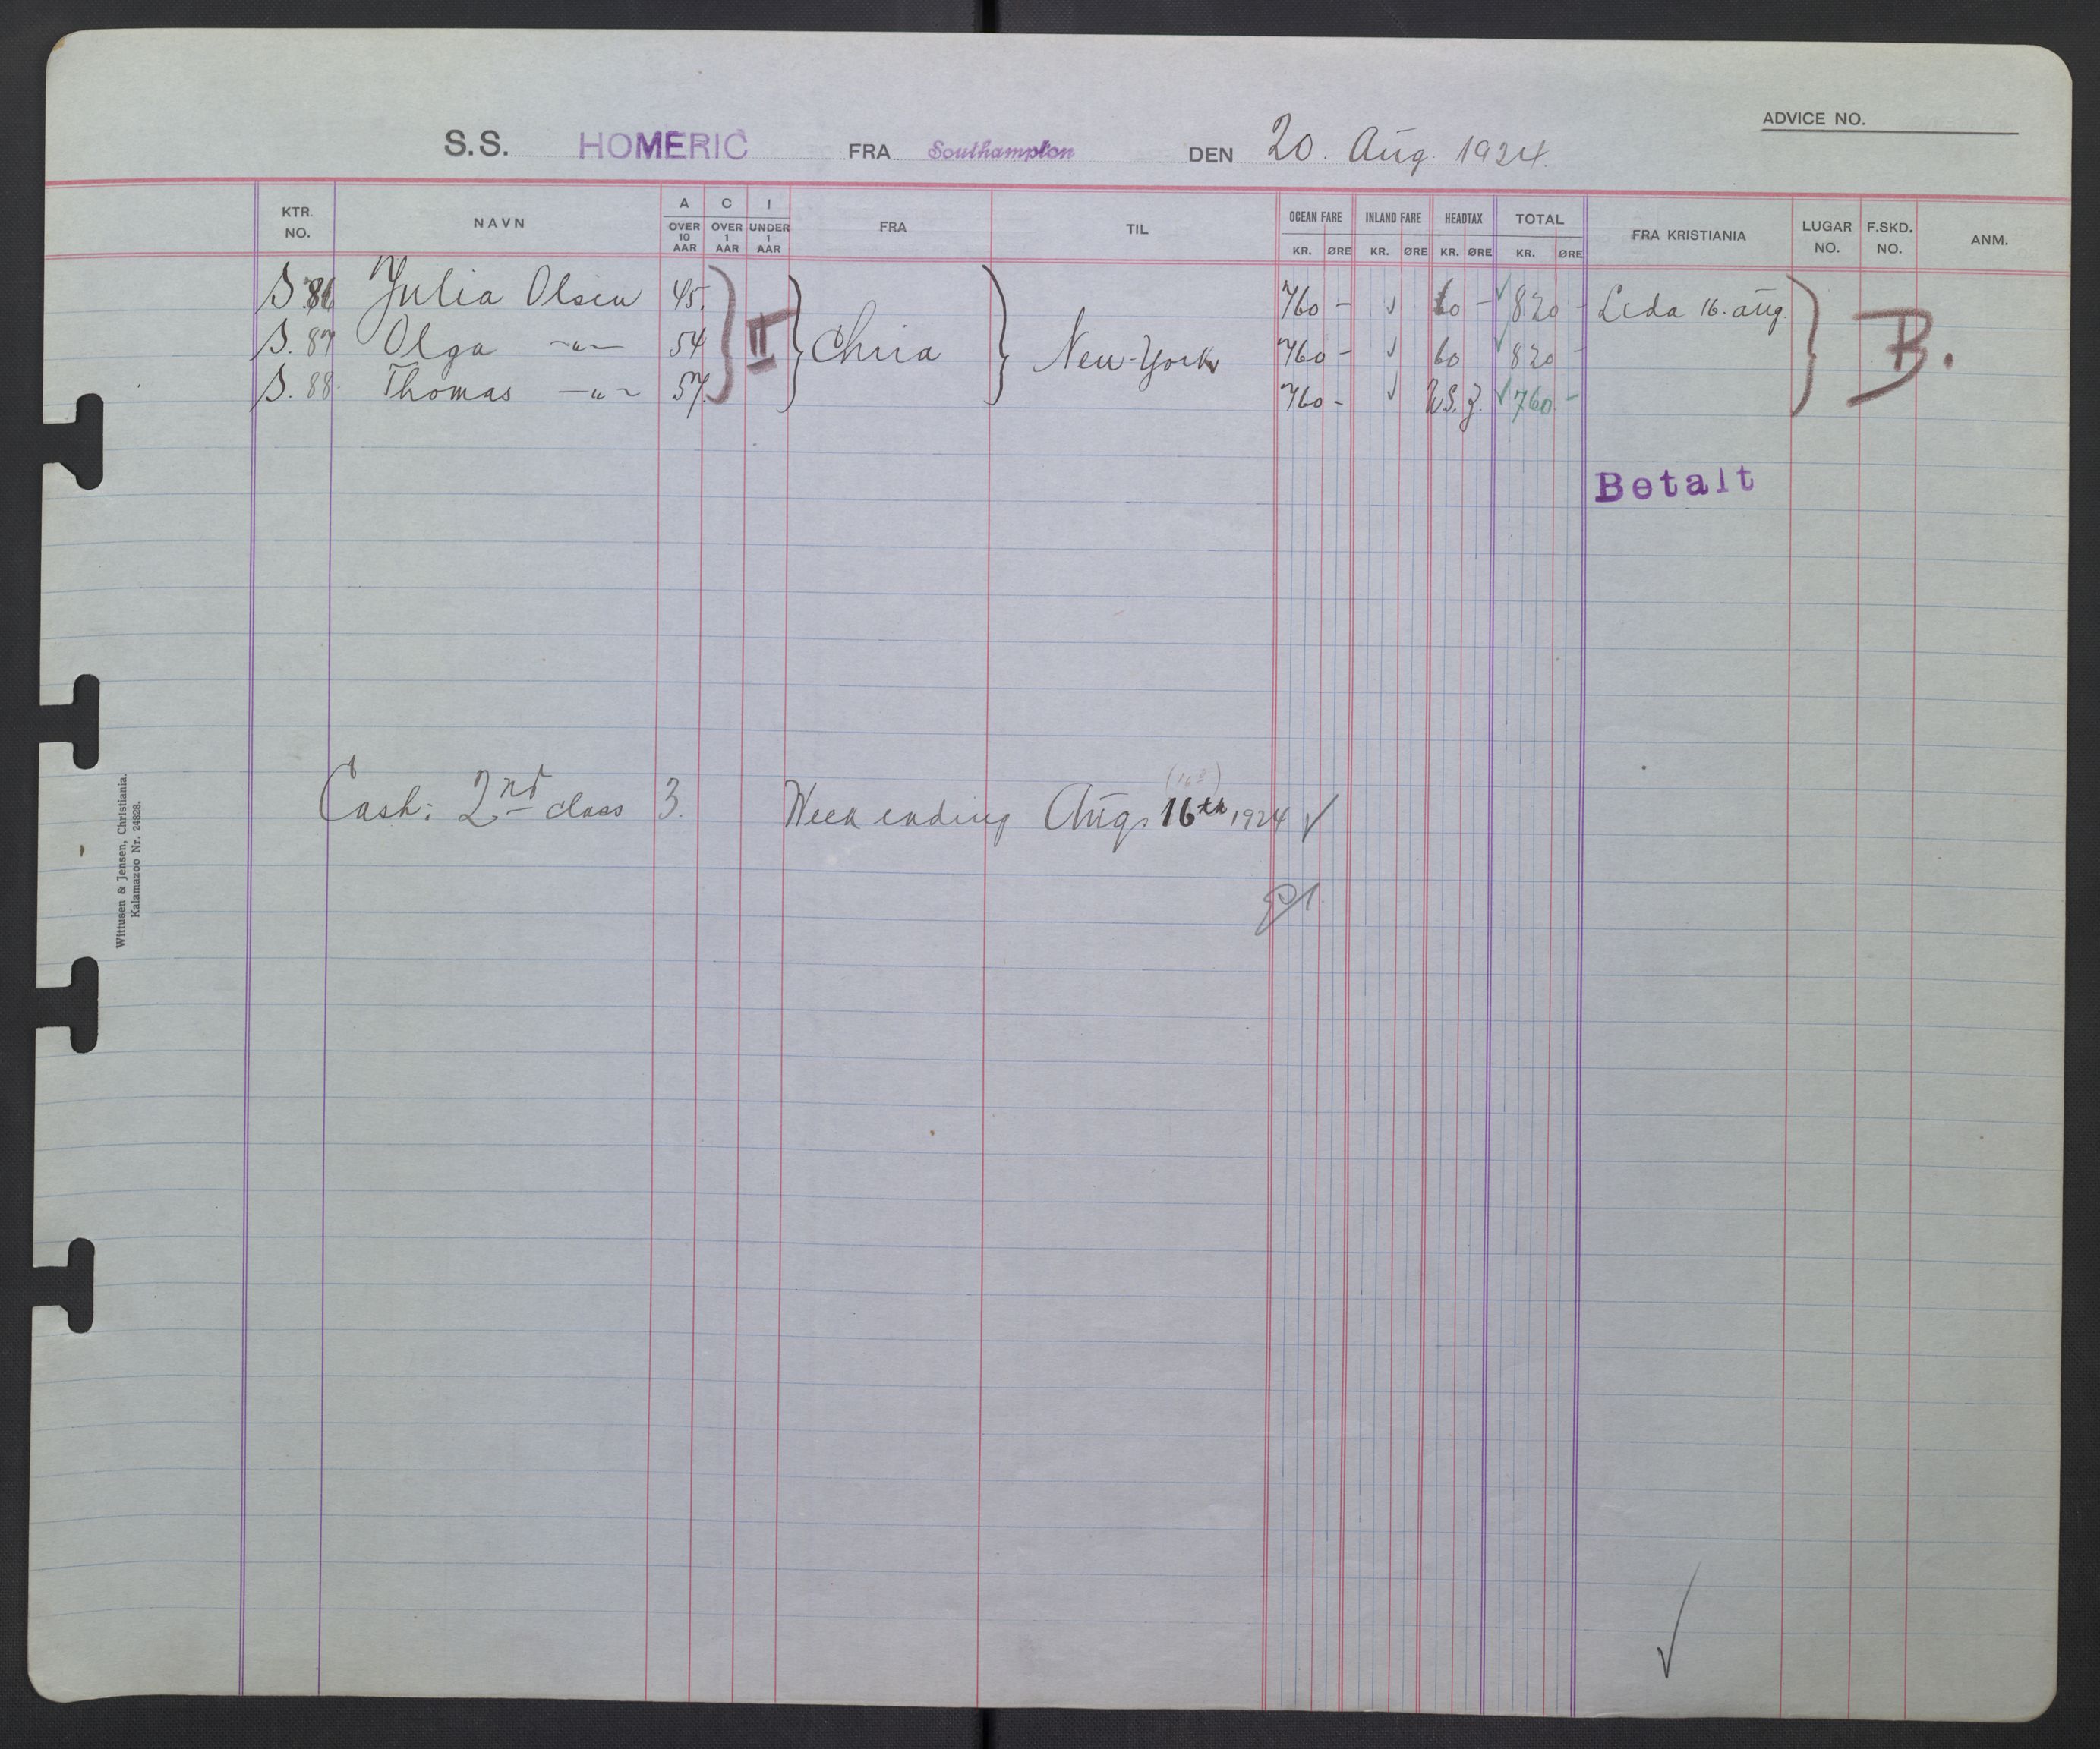 ADVICE NO.
S.S. HOMERIC FRA Southampton DEN 20. Aug. 1924.
KTR. NO. NAVN A OVER 10 AAR C OVER 1 AAR I UNDER 1 AAR FRA TIL OCEAN FARE KR. ØRE INLAND FARE KR. ØRE HEADTAX KR. ØRE TOTAL KR. ØRE FRA KRISTIANIA LUGAR NO. F.SKD. NO. ANM.
S. 86 Julia Olsen 45. 760 - 60 - 820 - Leda 16. aug.
S. 87 Olga -"- 54 II Chria New-York 760 - 60 820 - B.
S. 88. Thomas -"- 57. 760 - U.S.Z. 760. -
Betalt
(163)
Cash: 2nd class 3. Week ending Aug. 16th, 1924
Wittusen & Jensen, Christiania.
Kalamazoo Nr. 24828.